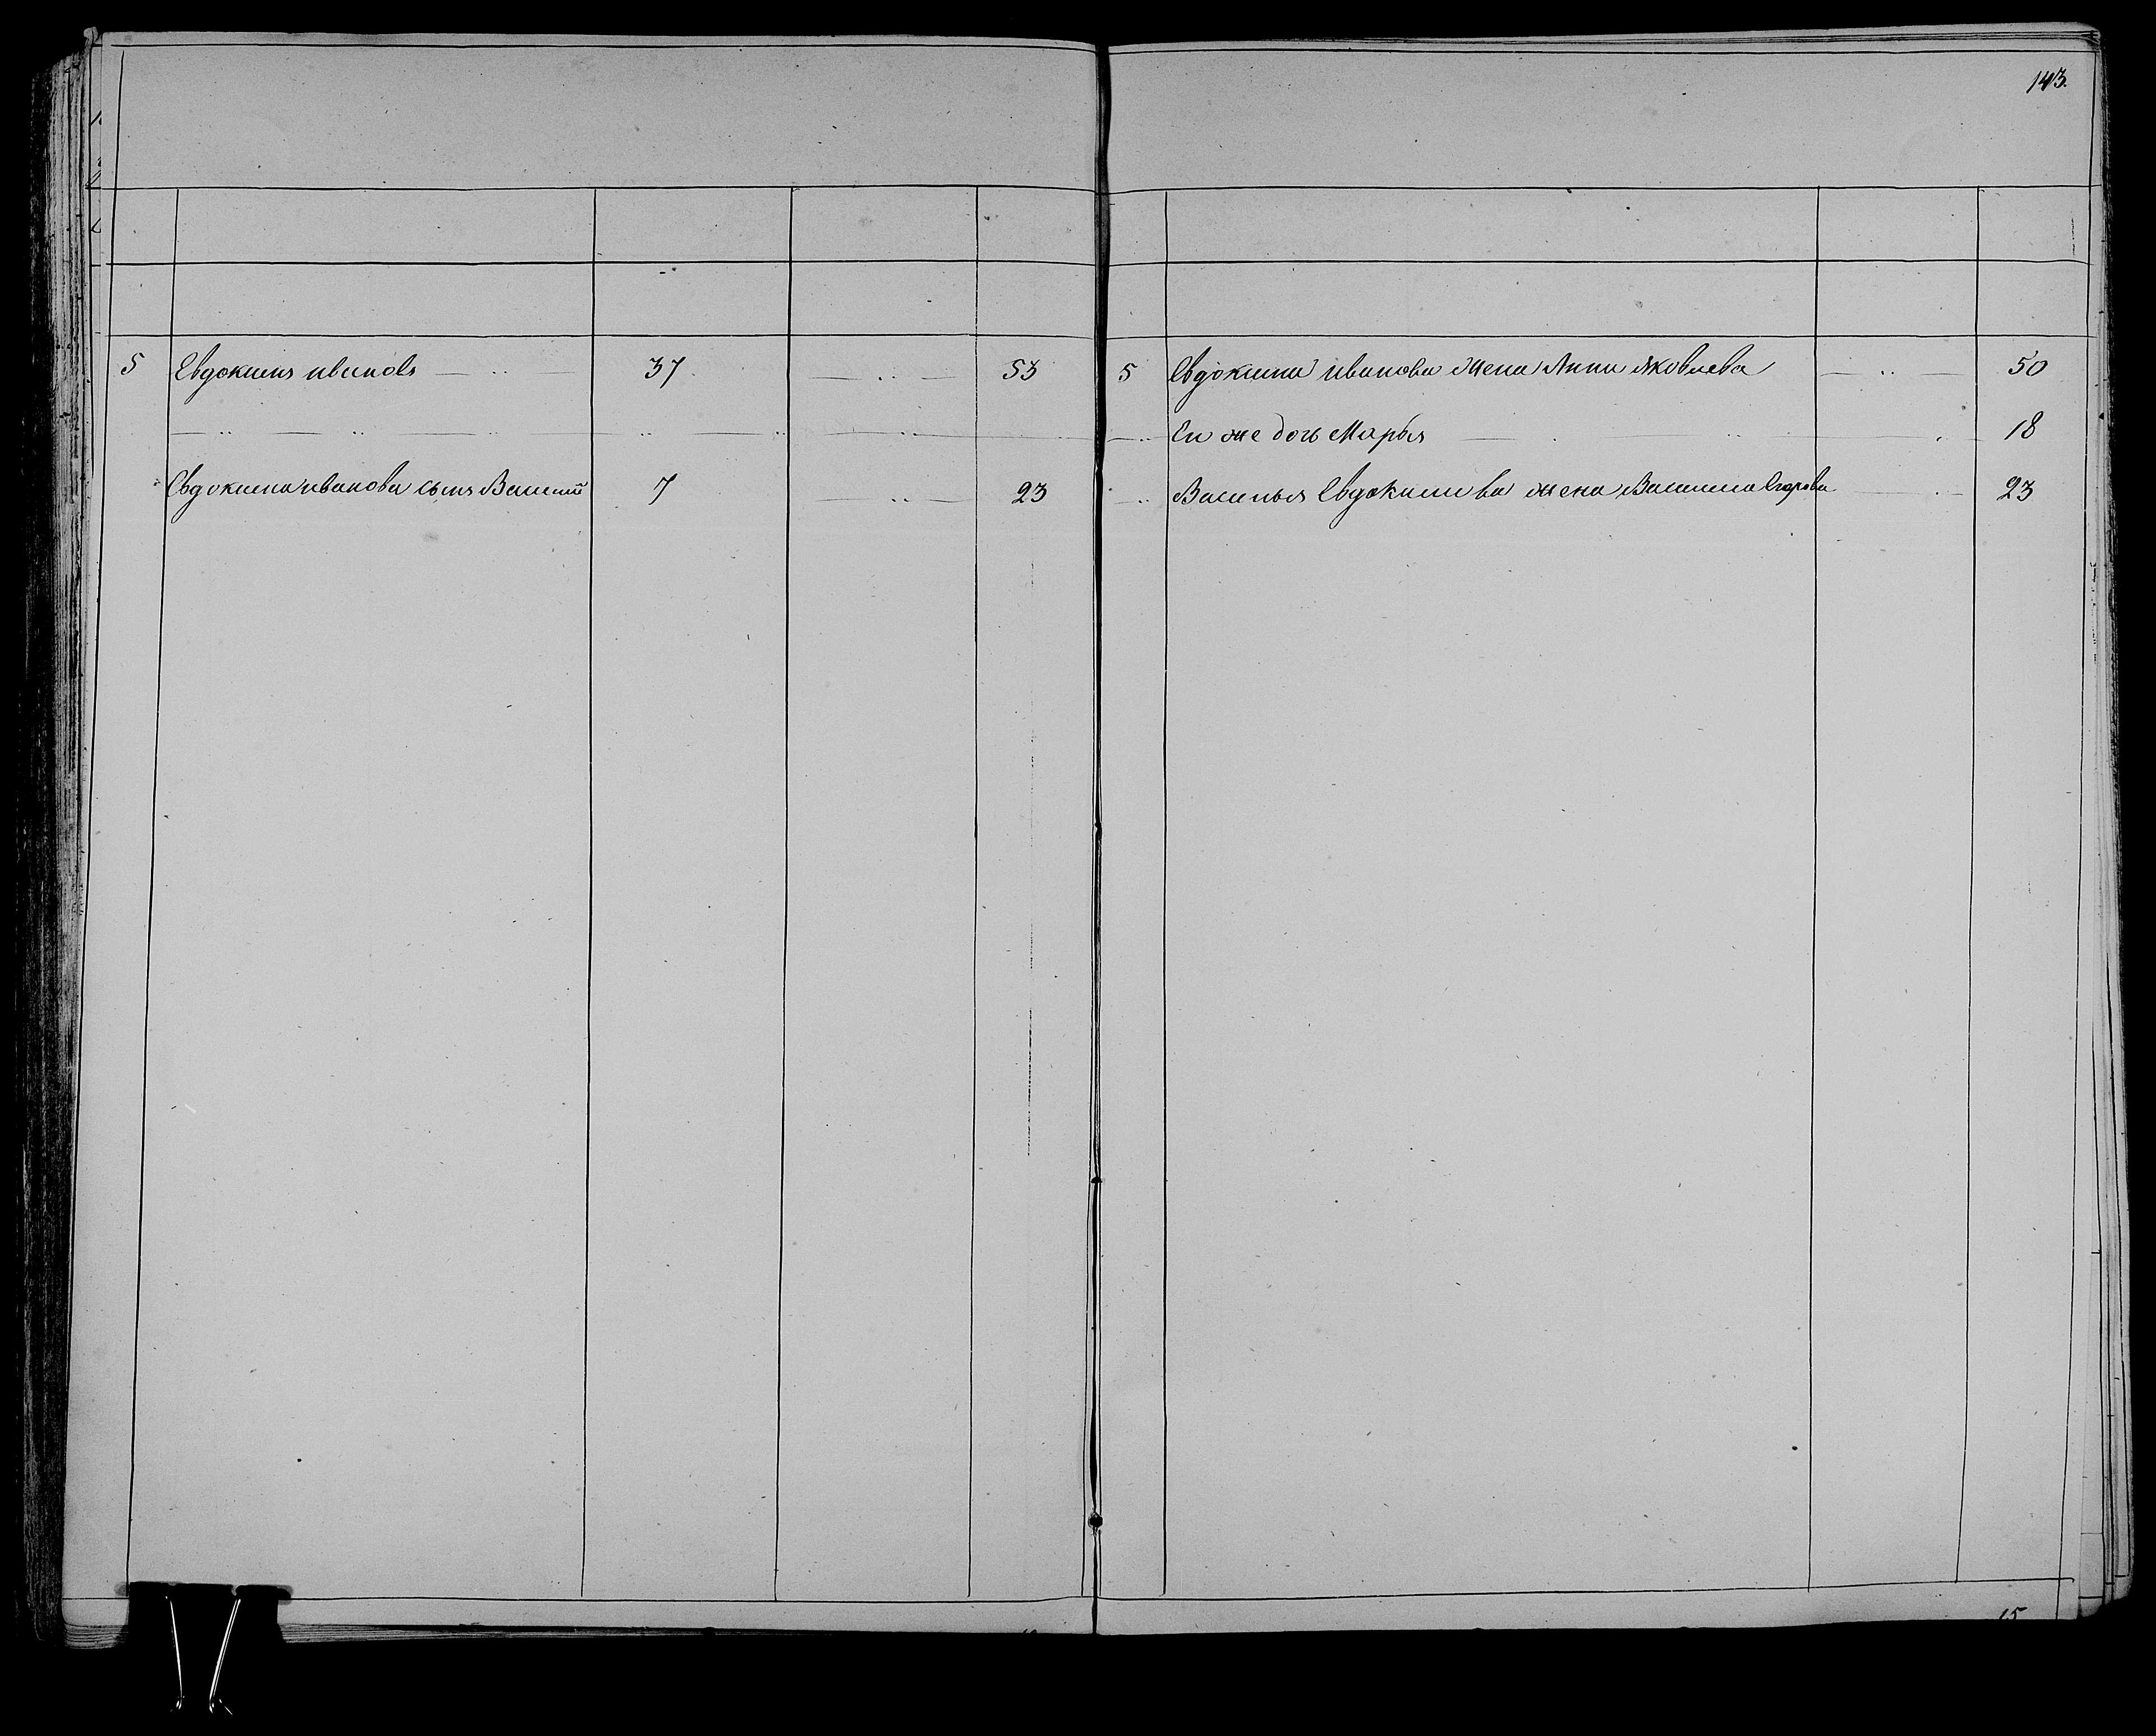 143.
5 Евдокимъ ивановъ — .. — 37. — .. — 53
Евдокима иванова сынъ Василий 7 — .. — 23
5 Евдокима иванова жена Анна Яковлева — .. — 50
Ея же дочь Марья — 18
.. Василья Евдокимова жена Егорова 23
15